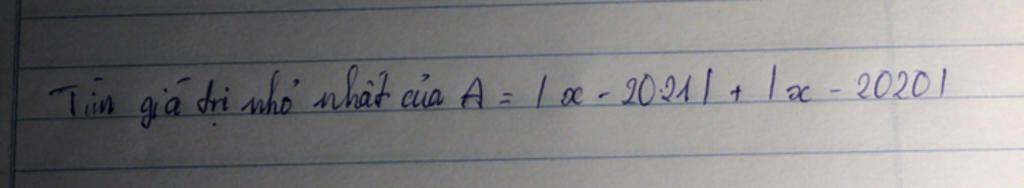 Tìm giá trị nhỏ nhất của A = |x - 2021| + |x - 2020|